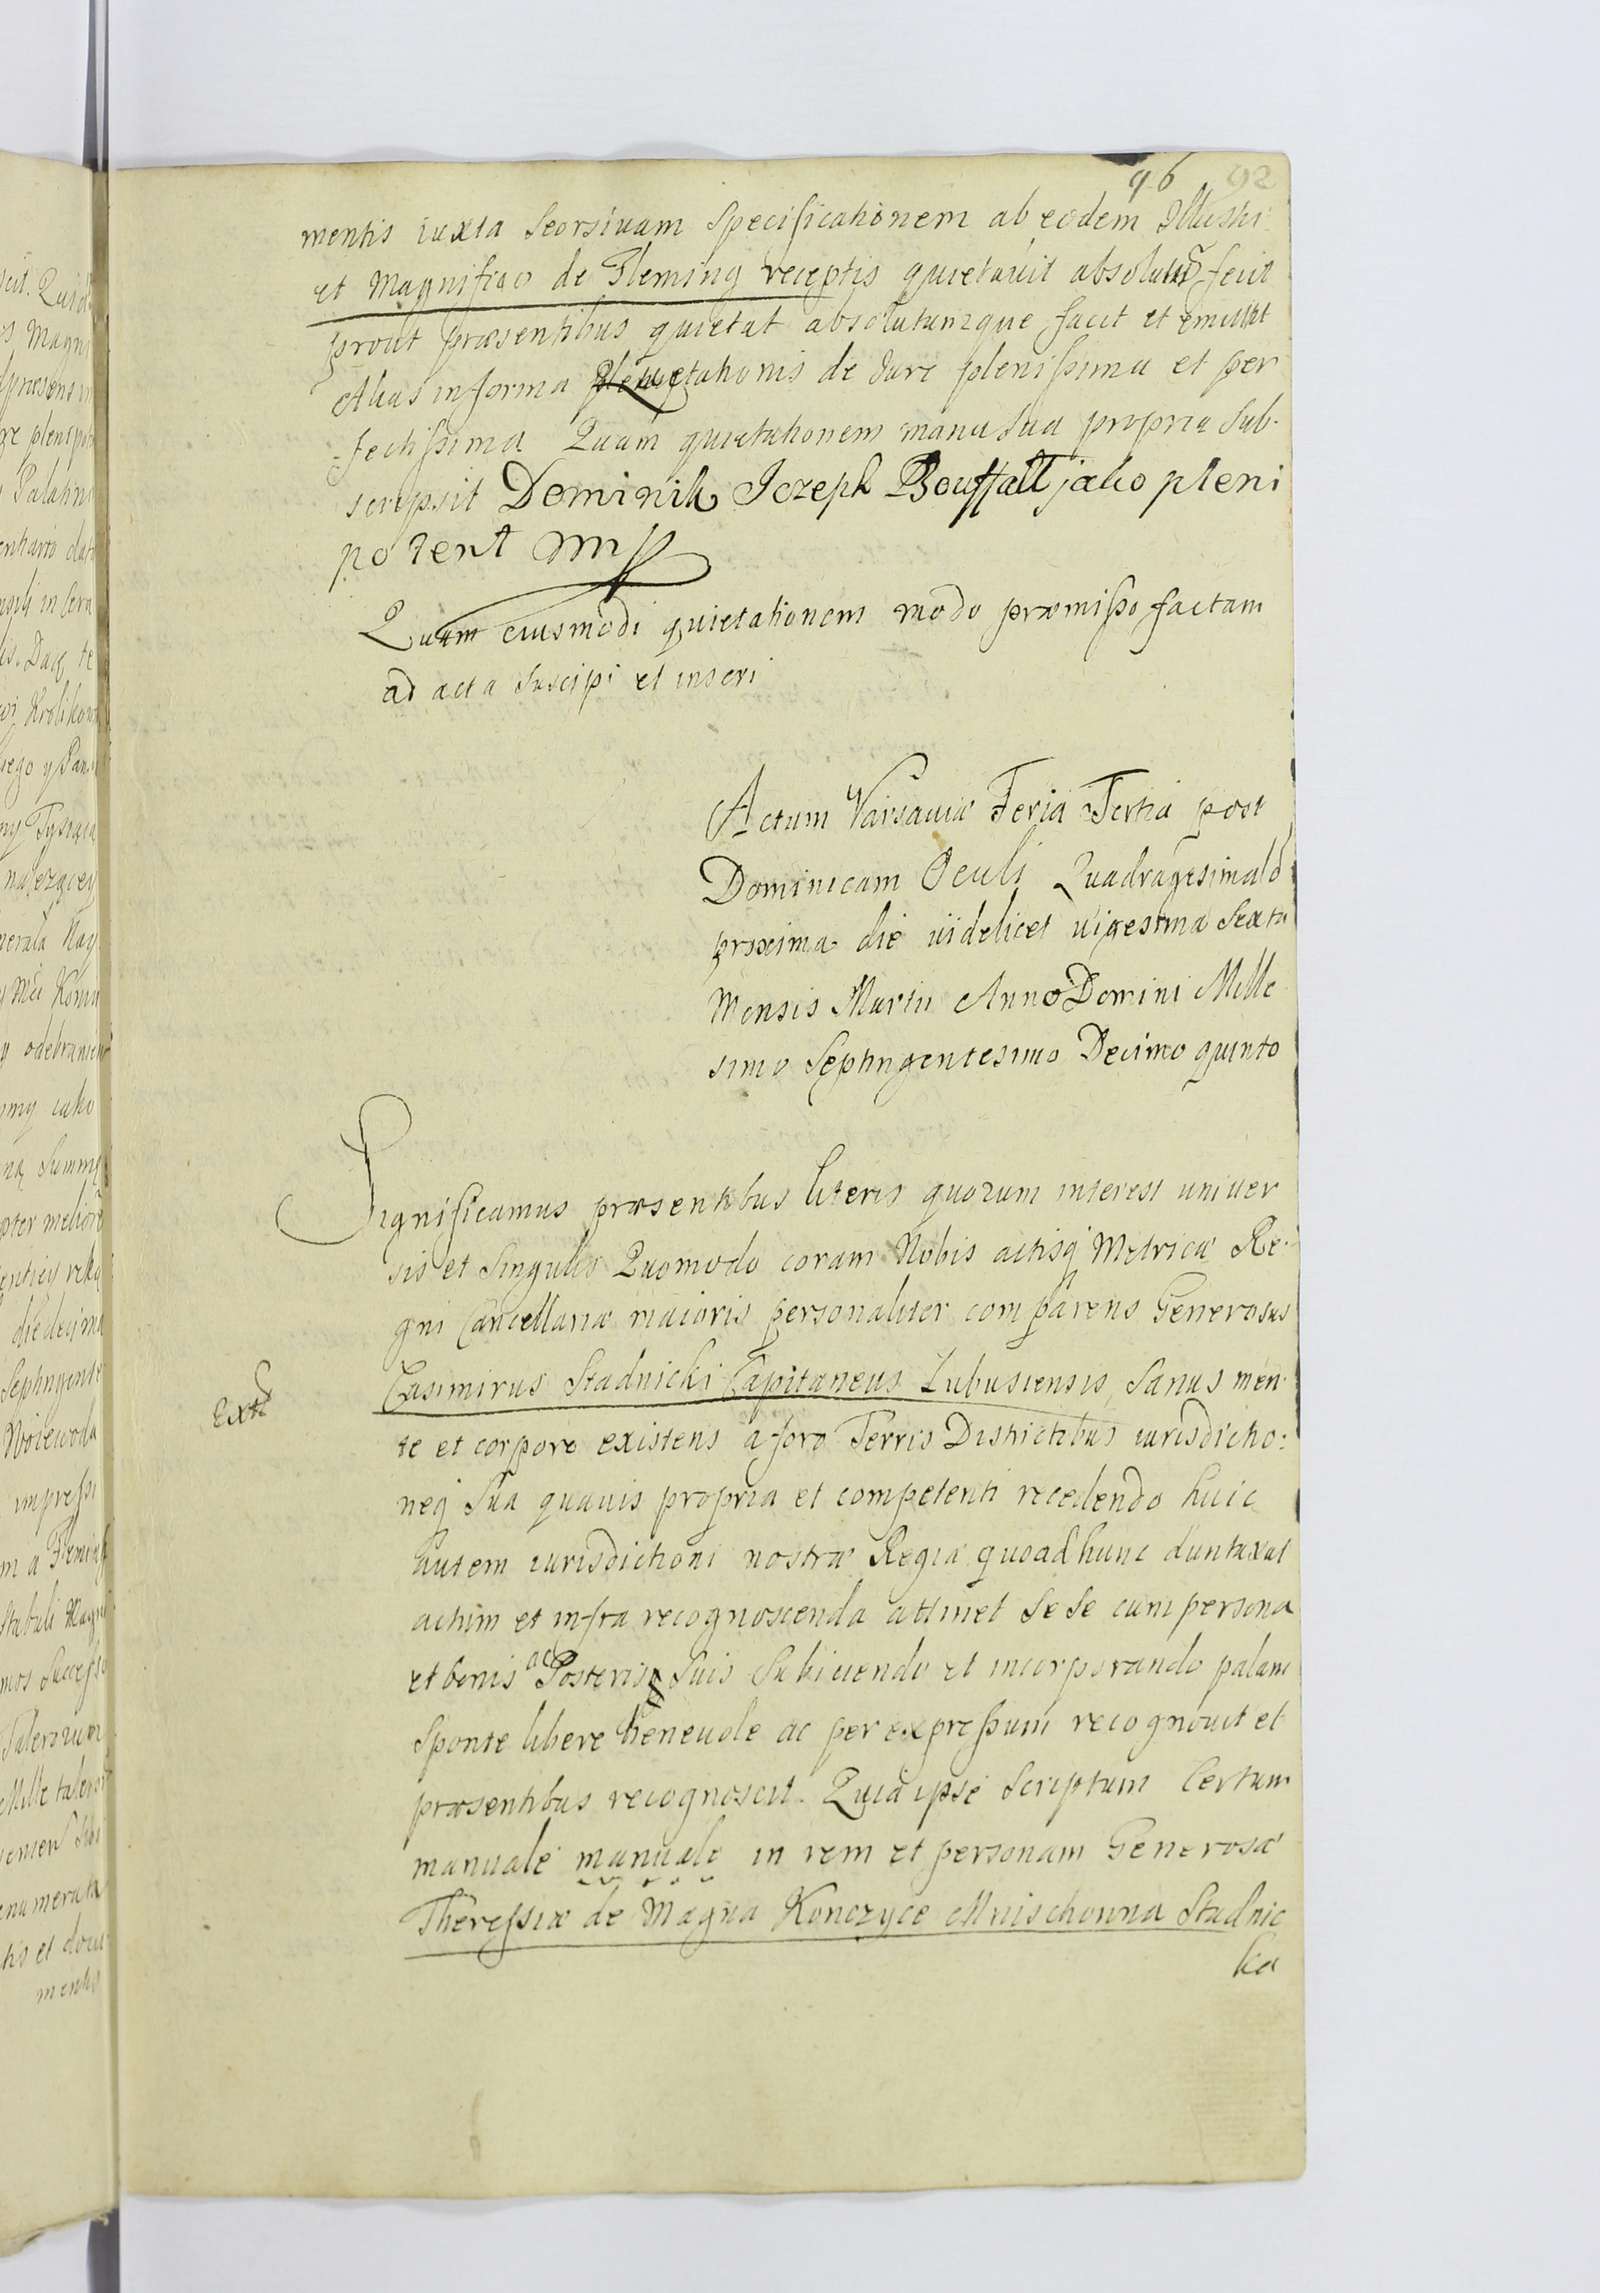 96 92
mentis iuxta seorsivam specificationem ab eodem Illustri
et Magnifico de Fleming receptis quietavit absolutũq̃ fecit
prout præsentibus quietat absolutumque facit et emittit
Alias in forma quietationis de iure plenissima et per
fectissima Quam quietationem manu sua propria sub-
scripsit Dominik Jozeph Bouffałł jako pleni
potent mp
Quam eiusmodi quietationem modo præmisso factam
ad acta suscipi et inseri
Actum Varsaviæ Feria Tertia post
Dominicam Oculi Quadragesimalẽ
proxima die videlicet vigesima sexta
Mensis Martii Anno Domini Mille
simo Septingentesimo Decimo quinto
Significamus præsentibus literis quorum interest univer
sis et singulis Quomodo coram Nobis actisq́ Metricæ Re-
gni Cancellariæ maioris personaliter comparens Generosus
Casimirus Stadnicki Capitaneus Lubusiensis, sanus men-
Extᵈ
te et corpore existens a foro Terris Districtibus iurisdictio:
neq́ sua quavis propria et competenti recedendo huic
autem iurisdictioni nostræ Regiæ quoad hunc duntaxat
actum et infra recognoscenda attinet se se cum persona
et bonis ac Posteris suis subiiciendo et incorporando palam
sponte libere benevole ac per expressum recognovit et
præsentibus recognoscit. Quia ipse scriptum certum
manuale manuale in rem et personam Generosæ
Theressiæ de Magna Konczyce Mnischowna Stadnic
ka
scit. Quid
s Magni
præsens in
Palatin
Krolikow
iego y Pan
odebranien
iako
na summę
die decima
Septingente
Woiewoda
impressi
m a Flemingk
Stabuli Magni
mos successo
Talerorum
Mille taler
enumerata
tis et docu
mentis